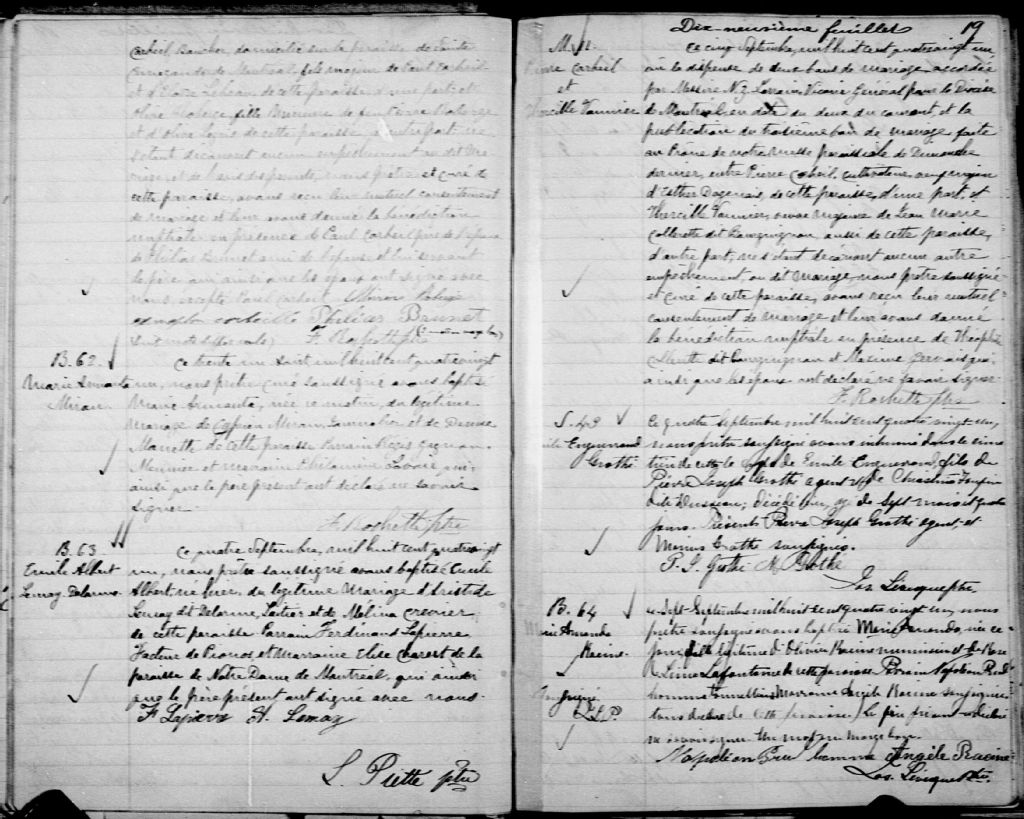 Corbeil Boucher, domicilié sur la paroisse de Sainte
Cunégonde de Montréal, fils majeur de Paul Corbeil
et d'Eloïse Lebeau, de cette paroisse, d'une part, et
fille mineure de feu Pierre
et d'Olive de cette paroisse, d'autre part, ne
s'étant découvert aucun empêchement au dit
nous prêtre et curé de
cette paroisse, avons reçu leur mutuel consentement
de mariage et leur avons donné la bénédiction
nuptiale en présence de Paul Corbeil père de l'époux
de Philias Brunet ami de l'épouse et lui servant
de père qui ainsi que les époux ont signé avec
nous, excepté Paul Corbeil
Philias Brunet
F. Rochette ptre
B. 62.
Marie Armanta
Miron
Ce trente un août mil huit cent quatrevingt
un, nous prêtre curé soussigné avons baptisé
Marie Armanta, née ce matin, du légitime
mariage de Cyprien Miron, journalier et de Denise
de cette paroisse Parrain Régis Gagnon
et marraine Philomène Lavoie qui
ainsi que le père présent ont déclaré ne savoir
signer.
F. Rochette Ptre
B. 63
Emile Albert
Lemay Delarme
Ce quatre Septembre, mil huit cent quatrevingt
un, nous prêtre soussigné avons baptisé Emile
Albert né hier, du légitime mariage d'Aristide
Lemay dit Delarme, et de Mélina Crevier
de cette paroisse Parrain Ferdinand Lapierre
Facteur de Pianos, et Marraine Elise Charest de la
paroisse de Notre Dame de Montréal, qui ainsi
que le père présent ont signé avec nous.
F Lapierre A. Lemay
L. Piette ptre
Dix neuvième feuillet 19
M. 11.
Pierre Corbeil
et
Thercille Vannier
Ce cinq Septembre, mil huit cent quatrevingt un
vu la dispense de deux bans de mariage accordée
par Messire N. Z. Lorrain, Vicaire Général pour le Diocèse
de Montréal en date du deux du courant, et la
publication du troisième ban de mariage faite
au Prône de notre messe paroissiale de Dimanche
dernier, entre Pierre Corbeil, cultivateur,
d'Esther Dagenais, de cette paroisse, d'une part, et
Thercille Vannier, veuve majeure de Léon Marie
Collerette dit Bourguignon, aussi de cette paroisse,
d'autre part, ne s'étant découvert aucun autre
empêchement au dit mariage, nous prêtre soussigné
et curé de cette paroisse, avons reçu leur mutuel
consentement de mariage et leur avons donné
la bénédiction nuptiale en présence de Théophile
dit Bourguignon et Maxime Gervais qui
ainsi que les époux ont déclaré ne savoir signer.
F. Rochette ptre
S. 43
Emile Enguerrand
Grothé
Ce quatre Septembre, mil huit cent quatre vingt un,
nous prêtre soussigné avons inhumé dans le cime
tière de cette le corps de Emile Enguerrand, fils de
Pierre Joseph Grothé agent et de
décédé hier, âgé de sept mois et quatre
jours. Présents Pierre Joseph Grothé agent et
Marius Grothé soussignés.
P. J. Grothé M. Grothé
Jos. Lévesque ptre
B. 64
Marie Amanda
Racine.
Ce Sept Septembre mil huit cent quatre vingt un, nous
prêtre soussigné avons baptisé Marie Amanda, née ce
jour fille légitime d'Olivier Racine menuisier et de Rose
de Lima Lafontaine de cette paroisse Parrain Napoléon Prud'
homme Marraine Angèle Racine soussignés
tous deux de cette paroisse. Le père présent a déclaré
ne savoir signer. Un mot en marge bon.
Napoléon Prud'homme Angèle Racine
Jos. Lévesque Ptre.